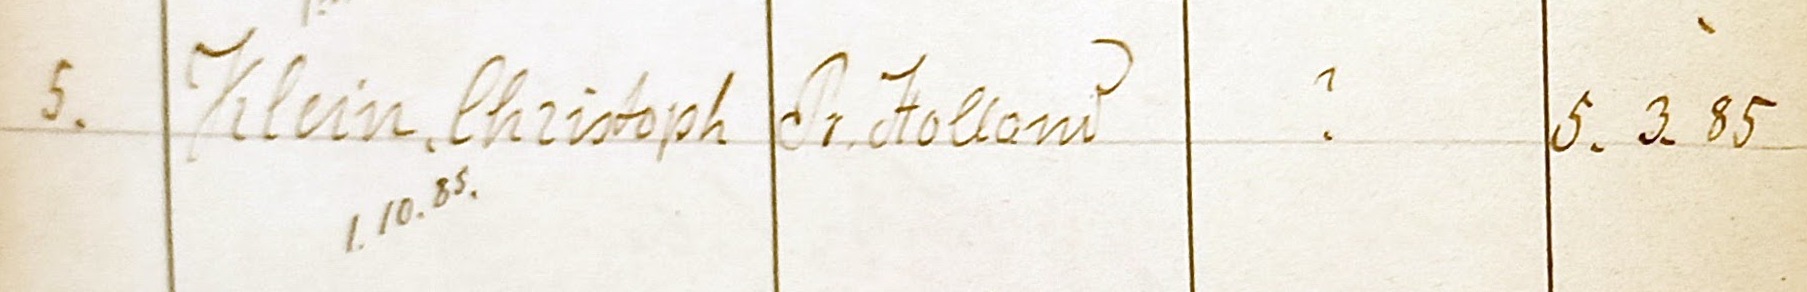 5. Klein, Christoph Pr. Holland ? 5. 3. 85
1. 10. 85.